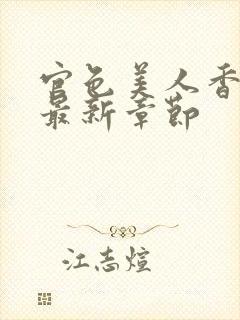 官色美人香
最新章节
江志煊